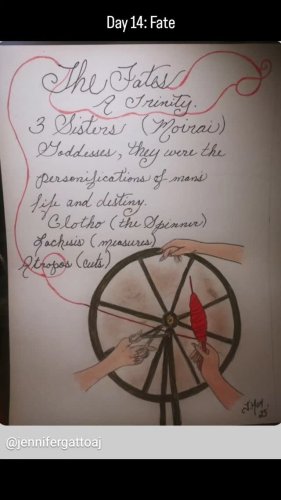 Day 14: Fate
The Fates
A Trinity.
3 Sisters (Moirai)
Goddesses, they were the
personifications of mans
life and destiny.
Clotho (the Spinner)
Lachesis (measures)
Atropos (cuts)
23
@jennifergattoaj